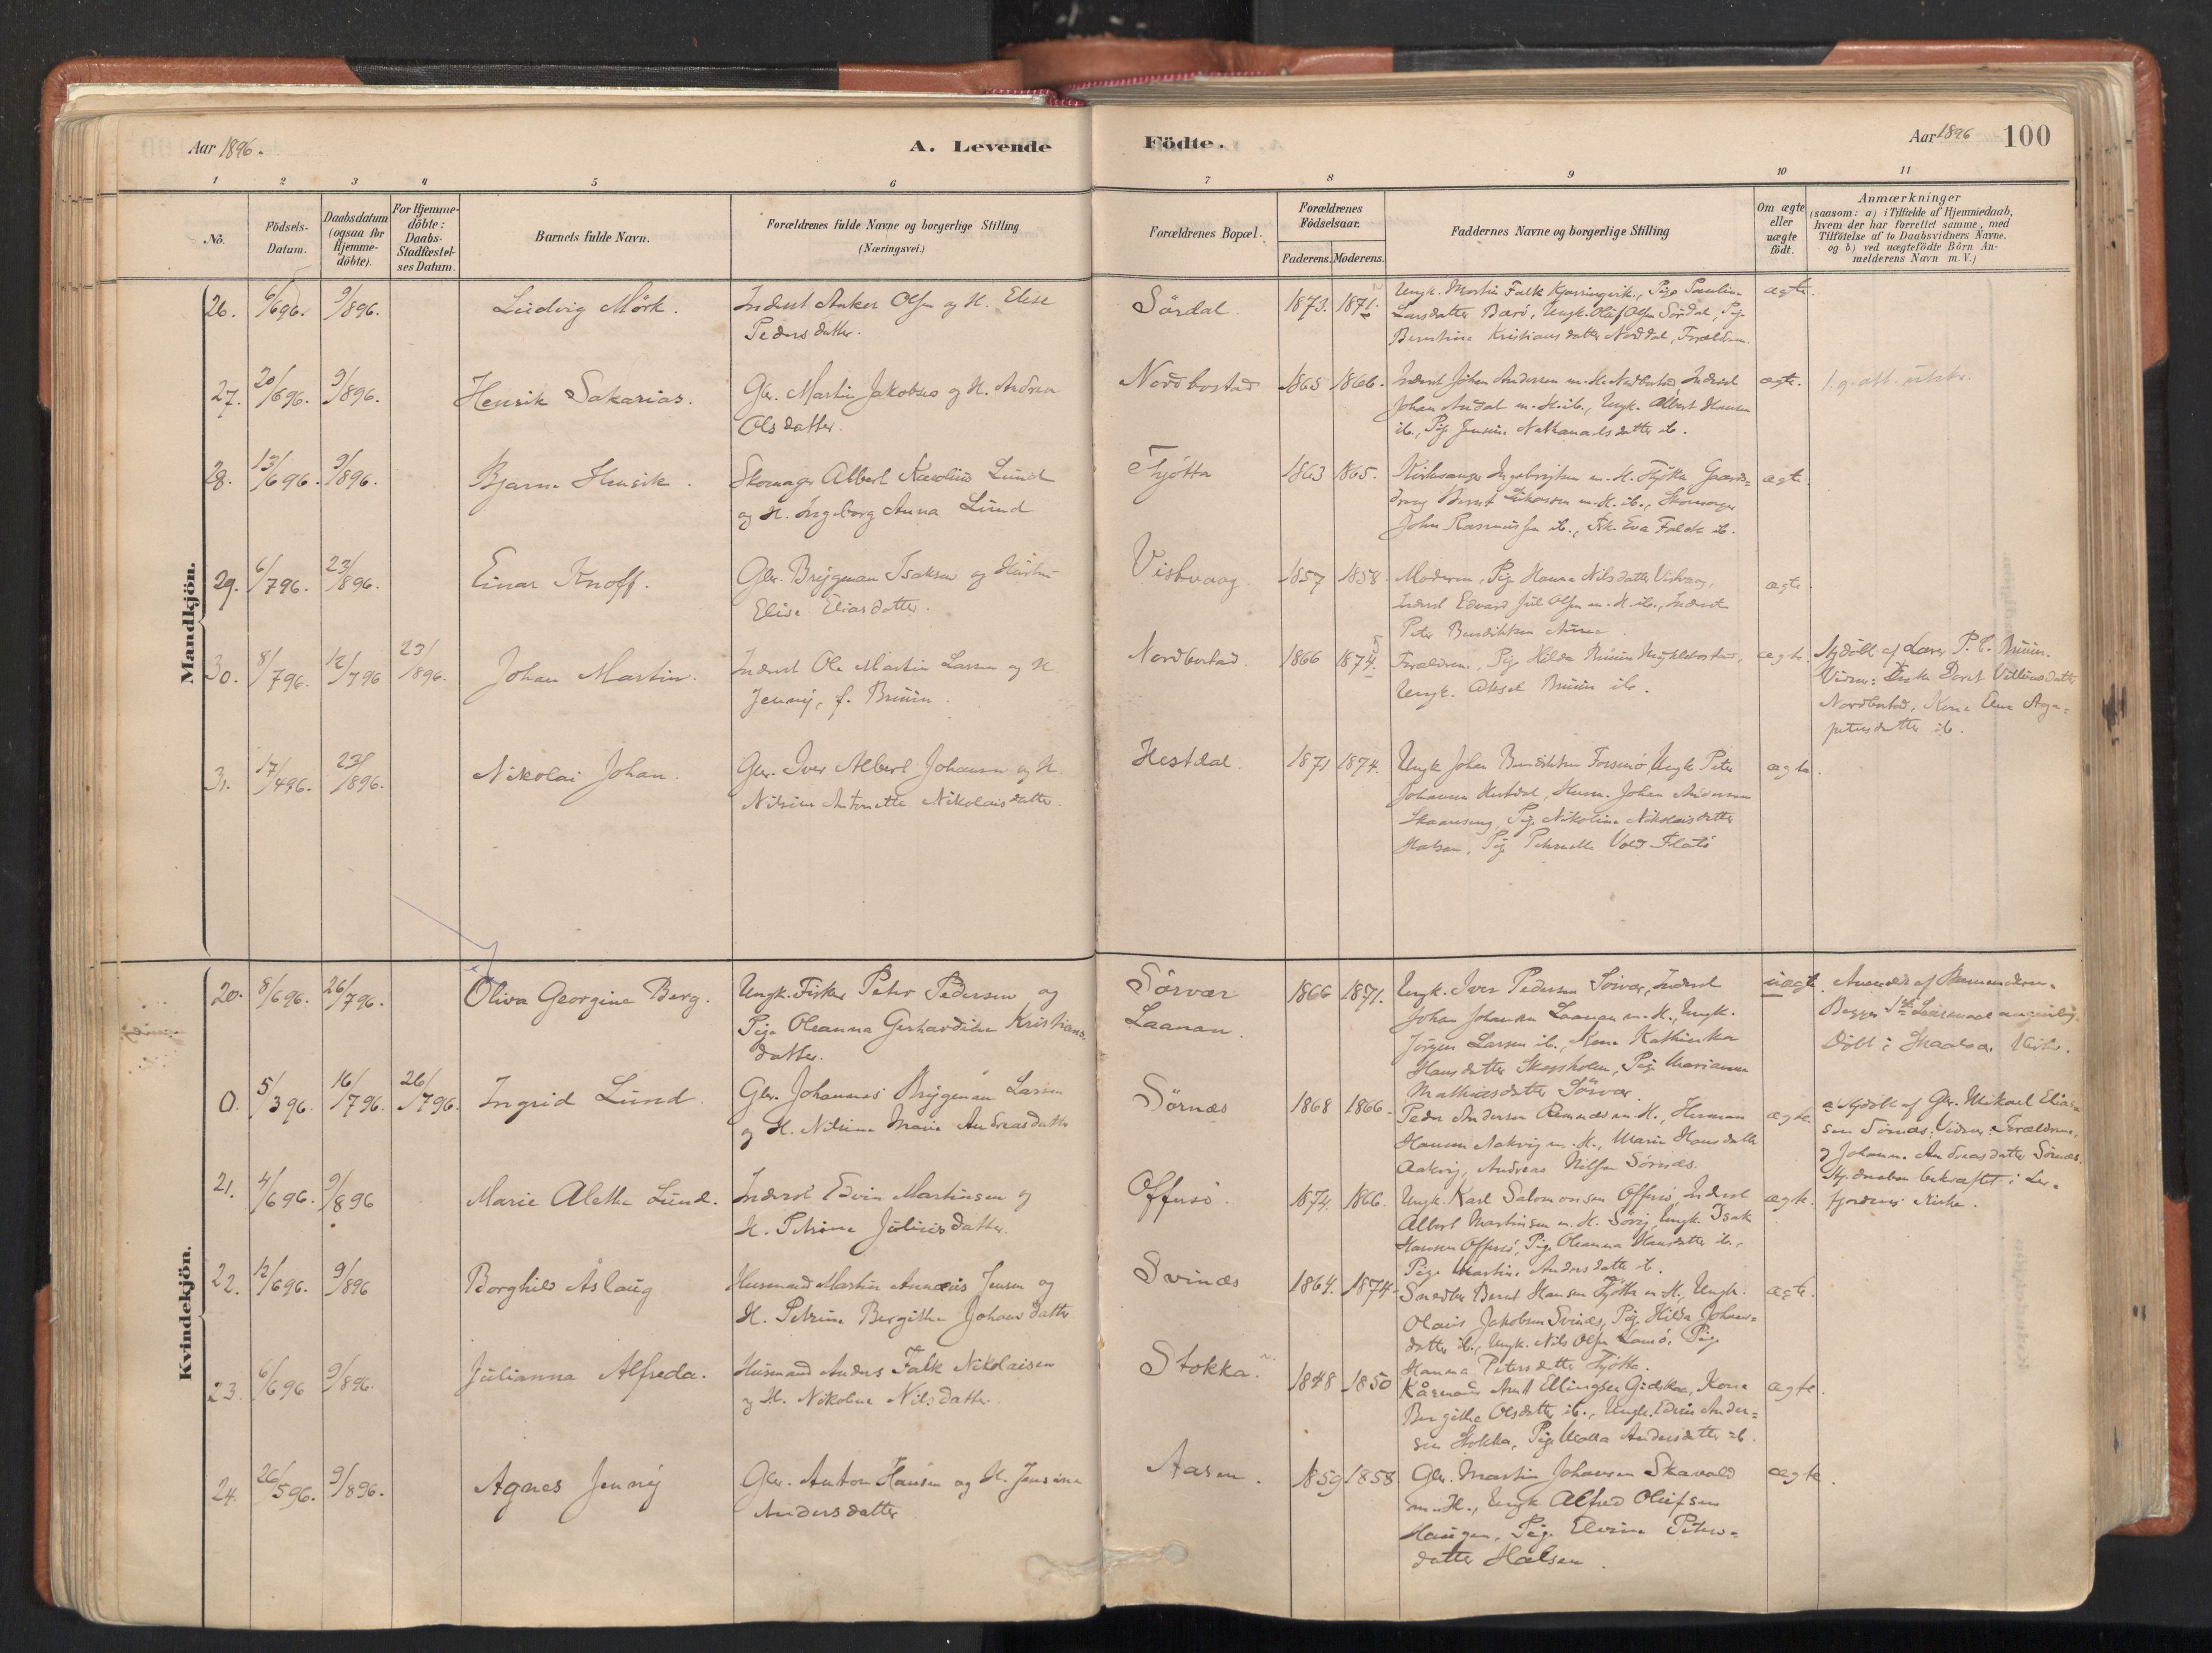 Aar 1896.
A. Levende
Födte.
Aar 1896
100
1 2 3 4 5 6 7 8 9 10 11
No.
Födsels-
Datum.
Daabsdatum
(ogsaa for
Hjemme-
döbte).
For Hjemme-
döbte:
Daabs-
Stadfæstel-
ses Datum.
Barnets fulde Navn.
Forældrenes fulde Navne og borgerlige Stilling
(Næringsvei.)
Forældrenes Bopæl.
Forældrenes
Födselsaar.
Faderens. Moderens.
Faddernes Navne og borgerlige Stilling
Om ægte
eller
uægte
födt.
Anmærkninger
(saasom: a) i Tilfælde af Hjemmedaab,
hvem der har forrettet samme, med
Tilföielse af to Daabsvidners Navne,
og b) ved uægtefödte Börn An-
melderens Navn m. V.)
Mandkjön.
26. 6/6 96. 9/8 96. Ludvig Mörk.
Inderst Anker Olsen og H. Elise
Pedersdatter.
Sördal. 1873. 1871.
Ungk. Martin Falk Kjærringvik., Pige Paulin
Larsdatter Barö, Ungk. Oluf Olsen Sördal, Pig.
Berntine Kristiansdatter Norddal, Forældren.
ægte.
27. 20/6 96. 9/8 96. Henrik Sakarias.
Gbr. Martin Jakobsen og H. Andrea
Olsdatter.
Nordbostad 1865 1866.
Inderst Johan Andersen m. H. Nordbostad, Inderst
Johan m. H. ib., Ungk. Albert Hansen
ib., Pige Jensine Nathanaelsdatter ib.
ægte.
28. 13/6 96. 9/8 96. Bjarne Henrik.
Skomager Albert Karolius Lund
og H. Ingeborg Anna Lund
Thjötta 1863 1865.
Kirkesanger Ingebrigtsen m. H. Tjötta Gaards-
dreng Bernt m. H. ib., Skomager
John Rasmussen ib., Frk. Eva Falck ib.
ægte
29. 6/7 96. 23/8 96. Einar Knoff.
Gbr. Brygman Isaksen og Hustru
Elise Eliasdatter.
Visthvaag. 1857 1858.
Moderen, Pige Hanna Nilsdatter Vistvaag,
Inderst Edvard Jul Olsen m. H. ib., Inderst
Peter Bendiksen
ægte.
30. 8/7 96. 12/7 96 23/8 96. Johan Martin.
Inderst Ole Martin Larsen og H.
Jenny, f. Bruun.
Nordbostad. 1866 1874.
Forældrene, Pige Hilda Bruun
Ungk. Aksel Bruun ib.
ægte. Hjdöbt af Lærer P. C. Bruun.
Vidner: Enke Doret
Nordbostad, Kone Elen Aga-
petusdatter ib.
31. 17/4 96. 23/8 96. Nikolai Johan.
Gbr. Iver Albert Johansen og H.
Nilsine Antonette Nikolaisdatter.
Hestdal. 1871 1874.
Ungk. Johan Bendiksen Forsmo, Ungk. Peter
Johansen Hestdal, Husm. Johan Andersen
Pige Nikoline Nikolaisdatter
Halsen, Pig. Petrnelle Vold Flatö
ægte.
Kvindekjön.
20. 8/6 96. 26/7 96. Oliva Georgine Berg.
Ungk. Fisker Peter Pedersen og
Pige Oleanna Gerhardine Kristians-
datter.
Sörvær
Laanan. 1866 1871.
Ungk. Iver Pedersen Sörvær, Inderst
Johan Johansen Laanan m. H., Ungk.
Jörgen Larsen ib., Kone Kathinka
Hansdatter Skogsholm, Pige Marianna
Mathiasdatter Sörvær.
uægte. Anmeldt af Barnemoderen.
Begges 1ste Leiermaal angivelig.
Döbt i Kirke.
0. 5/3 96. 16/7 96. 26/7 96. Ingrid Lund.
Gbr. Johannes Brygman Larsen
og H. Nilsine Marie Andreasdatter
Sörnæs 1868 1866.
Peder Andersen m. H., Herman
Hansen Aakvig m. H., Marie Hansdatter
Aakvig, Andreas Nilsen Sörnæs.
ægte. a) Hjdöbt af Gbr. Mikael Elias-
sen Sörnæs; Vidner: Forældrene,
og Johanna Andreasdatter Sörnæs.
Hj.daaben bekræftet i Leir-
fjordens Kirke.
21. 4/6 96. 9/8 96 Marie Alette Lund.
Inderst Edvin Martinsen og
H. Petrine Juliusdatter.
Offersö. 1874. 1866.
Ungk. Karl Salomonsen Offersö, Inderst
Albert Martinsen m. H. Sörvig, Ungk. Isak
Hansen Offersö, Pige Oleanna Hansdatter ib.,
Pige Martine Andersdatter ib.
ægte.
22. 12/6 96. 9/8 96 Borghild Aslaug
Husmand Martin Annæus Jensen og
H. Petrine Bergitha Johansdatter
Svinæs 1864. 1874.
Snedker Bernt Hansen Tjötta m. H., Ungk.
Olaus Jakobsen Svinæs, Pige Hilda Johans-
datter ib., Ungk. Nils Olsen Pige
Hanna Petersdatter Tjötta.
ægte.
23. 6/6 96 9/8 96. Julianna Alfreda.
Husmand Anders Falk Nikolaisen
og H. Nikoline Nilsdatter.
Stokka. 1848 1850
Kårmand Arnt Ellingsen Kone
Bergitha Olsdatter ib., Ungk. Edvin Ander-
sen Stokka, Pige Andersdatter ib.
ægte.
24. 26/5 96. 9/8 96. Agnes Jenny
Gbr. Anton Hansen og H. Jensine
Andersdatter
Aasen. 1859 1858
Gbr. Martin Johansen Skavold
m. H., Ungk. Alfred Olufsen
Haugen, Pige Elvine Peters-
datter Halsen.
ægte.